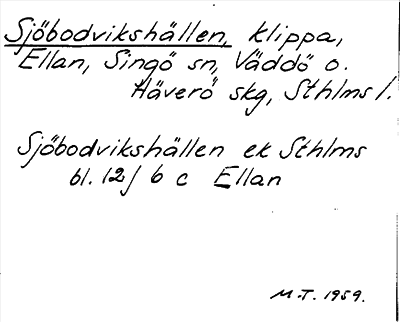 Sjöbodvikshällen, klippa,
Ellan, Singö sn, Väddö o.
Häverö skg, Sthlms l.
Sjöbodvikshällen ek Sthlms
bl. 12/ 6 c Ellan
M.T. 1959.